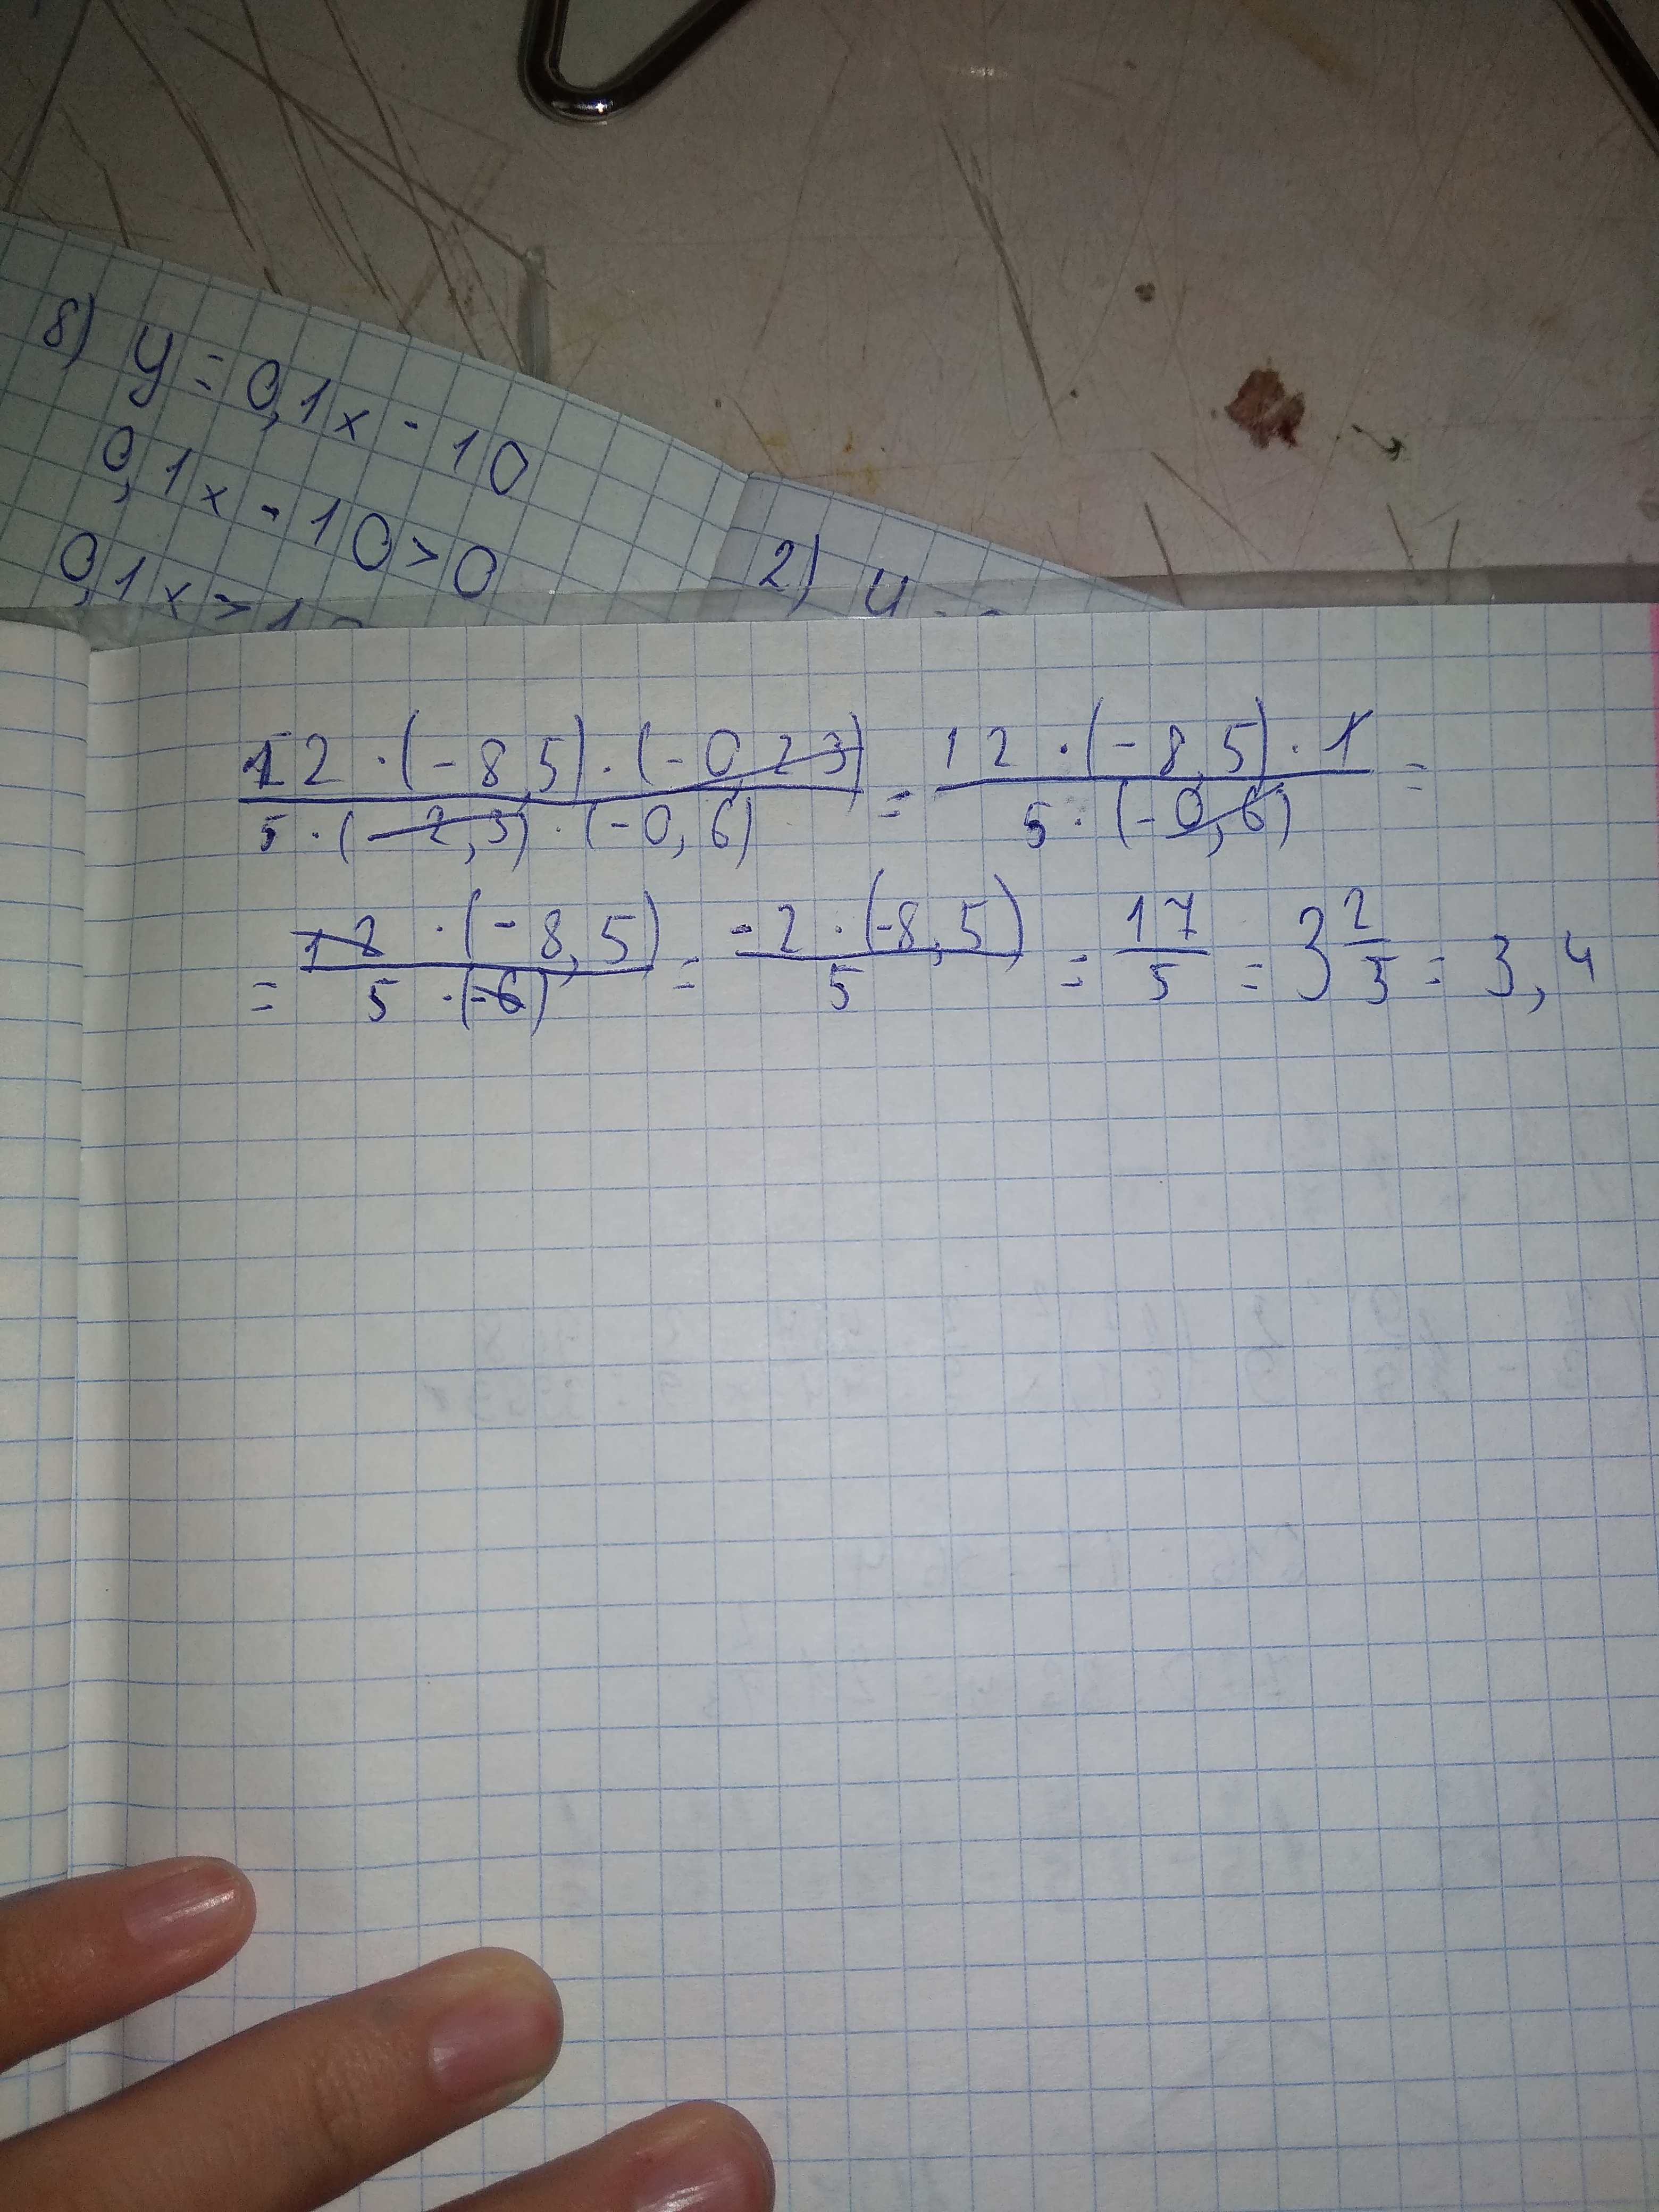 б) y = 0,1x - 10
0,1x - 10 > 0
0,1x > 10
2) y =
12 · (-8,5) · (-0,23) / 5 · (-2,3) · (-0,6) = 12 · (-8,5) · 1 / 5 · (-0,6) =
= 12 · (-8,5) / 5 · (-6) = -2 · (-8,5) / 5 = 17/5 = 3 2/5 = 3,4